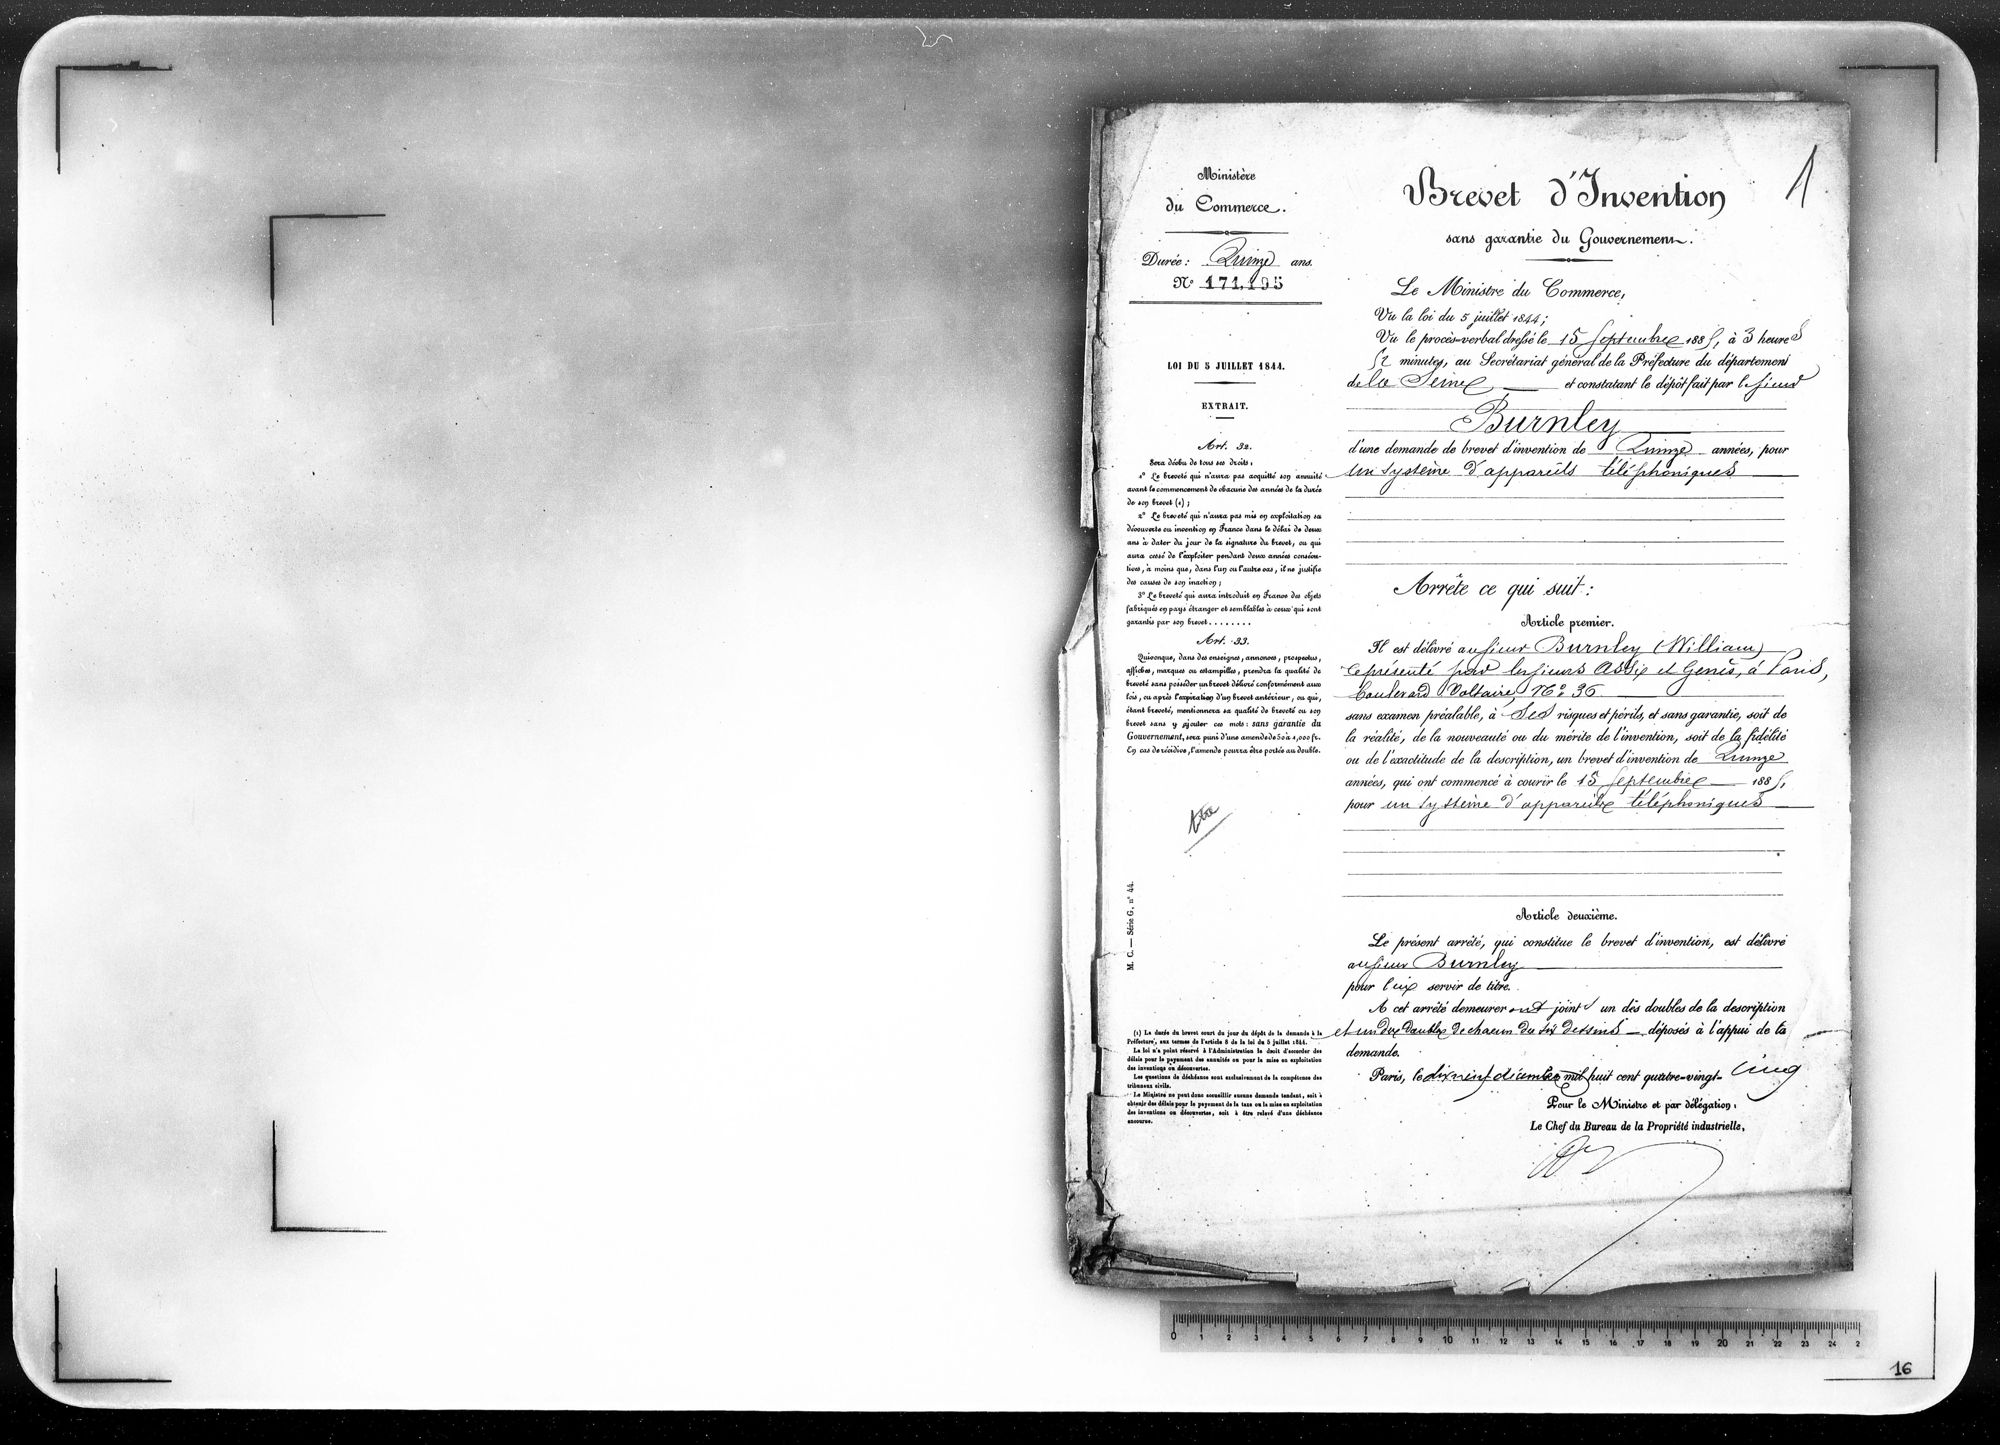 Ministère
du Commerce.
Durée : Quinze ans.
N° 171,195
LOI DU 5 JUILLET 1844.
EXTRAIT.
Art. 32.
Sera déchu de tous ses droits :
1° Le breveté qui n'aura pas acquitté son annuité
avant le commencement de chacune des années de la durée
de son brevet (1) ;
2° Le breveté qui n'aura pas mis en exploitation sa
découverte ou invention en France dans le délai de deux
ans à dater du jour de la signature du brevet, ou qui
aura cessé de l'exploiter pendant deux années consécu-
tives, à moins que, dans l'un ou l'autre cas, il ne justifie
des causes de son inaction ;
3° Le breveté qui aura introduit en France des objets
fabriqués en pays étranger et semblables à ceux qui sont
garantis par son brevet........
Art. 33.
Quiconque, dans des enseignes, annonces, prospectus,
affiches, marques ou estampilles, prendra la qualité de
breveté sans posséder un brevet délivré conformément aux
lois, ou après l'expiration d'un brevet antérieur, ou qui,
étant breveté, mentionnera sa qualité de breveté ou son
brevet sans y ajouter ces mots : sans garantie du
Gouvernement, sera puni d'une amende de 50 à 1,000 fr.
En cas de récidive, l'amende pourra être portée au double.
M. C. — Série G. n° 44.
(1) La durée du brevet court du jour du dépôt de la demande à la
Préfecture, aux termes de l'article 8 de la loi du 5 juillet 1844.
La loi n'a point réservé à l'Administration le droit d'accorder des
délais pour le payement des annuités ou pour la mise en exploitation
des inventions ou découvertes.
Les questions de déchéance sont exclusivement de la compétence des
tribunaux civils.
Le Ministre ne peut donc accueillir aucune demande tendant, soit à
obtenir des délais pour le payement de la taxe ou la mise en exploitation
des inventions ou découvertes, soit à être relevé d'une déchéance
encourue.
1
Brevet d'Invention
sans garantie du Gouvernement.
Le Ministre du Commerce,
Vu la loi du 5 juillet 1844 ;
Vu le procès-verbal dressé le 15 Septembre 1885, à 3 heures
52 minutes, au Secrétariat général de la Préfecture du département
de la Seine et constatant le dépôt fait par le sieur
Burnley
d'une demande de brevet d'invention de Quinze années, pour
un système d'appareils téléphoniques
Arrête ce qui suit :
Article premier.
Il est délivré au sieur Burnley (William)
représenté par les sieurs Assi et Genès, à Paris,
boulevard Voltaire, N° 36
sans examen préalable, à ses risques et périls, et sans garantie, soit de
la réalité, de la nouveauté ou du mérite de l'invention, soit de la fidélité
ou de l'exactitude de la description, un brevet d'invention de Quinze
années, qui ont commencé à courir le 15 Septembre 1885,
pour un système d'appareils téléphoniques
Article deuxième.
Le présent arrêté, qui constitue le brevet d'invention, est délivré
au sieur Burnley
pour lui servir de titre.
A cet arrêté demeureront joints un des doubles de la description
et un des doubles de chacun des six dessins déposés à l'appui de la
demande.
Paris, le dix neuf décembre mil huit cent quatre-vingt-cinq
Pour le Ministre et par délégation :
Le Chef du Bureau de la Propriété industrielle,
0 1 2 3 4 5 6 7 8 9 10 11 12 13 14 15 16 17 18 19 20 21 22 23 24 2
16